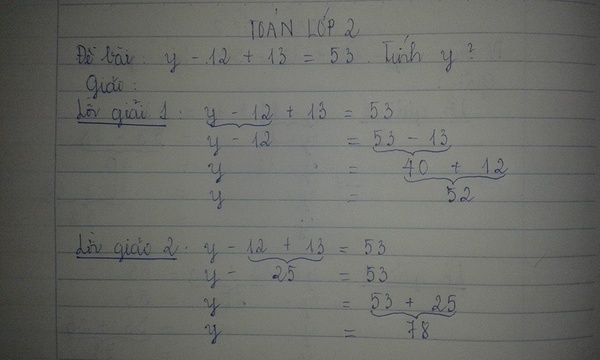 TOÁN LỚP 2
Đề bài: y - 12 + 13 = 53. Tính y?
Giải:
Lời giải 1: y - 12 + 13 = 53
y - 12 = 53 - 13
y = 40 + 12
y = 52
Lời giải 2: y - 12 + 13 = 53
y - 25 = 53
y = 53 + 25
y = 78